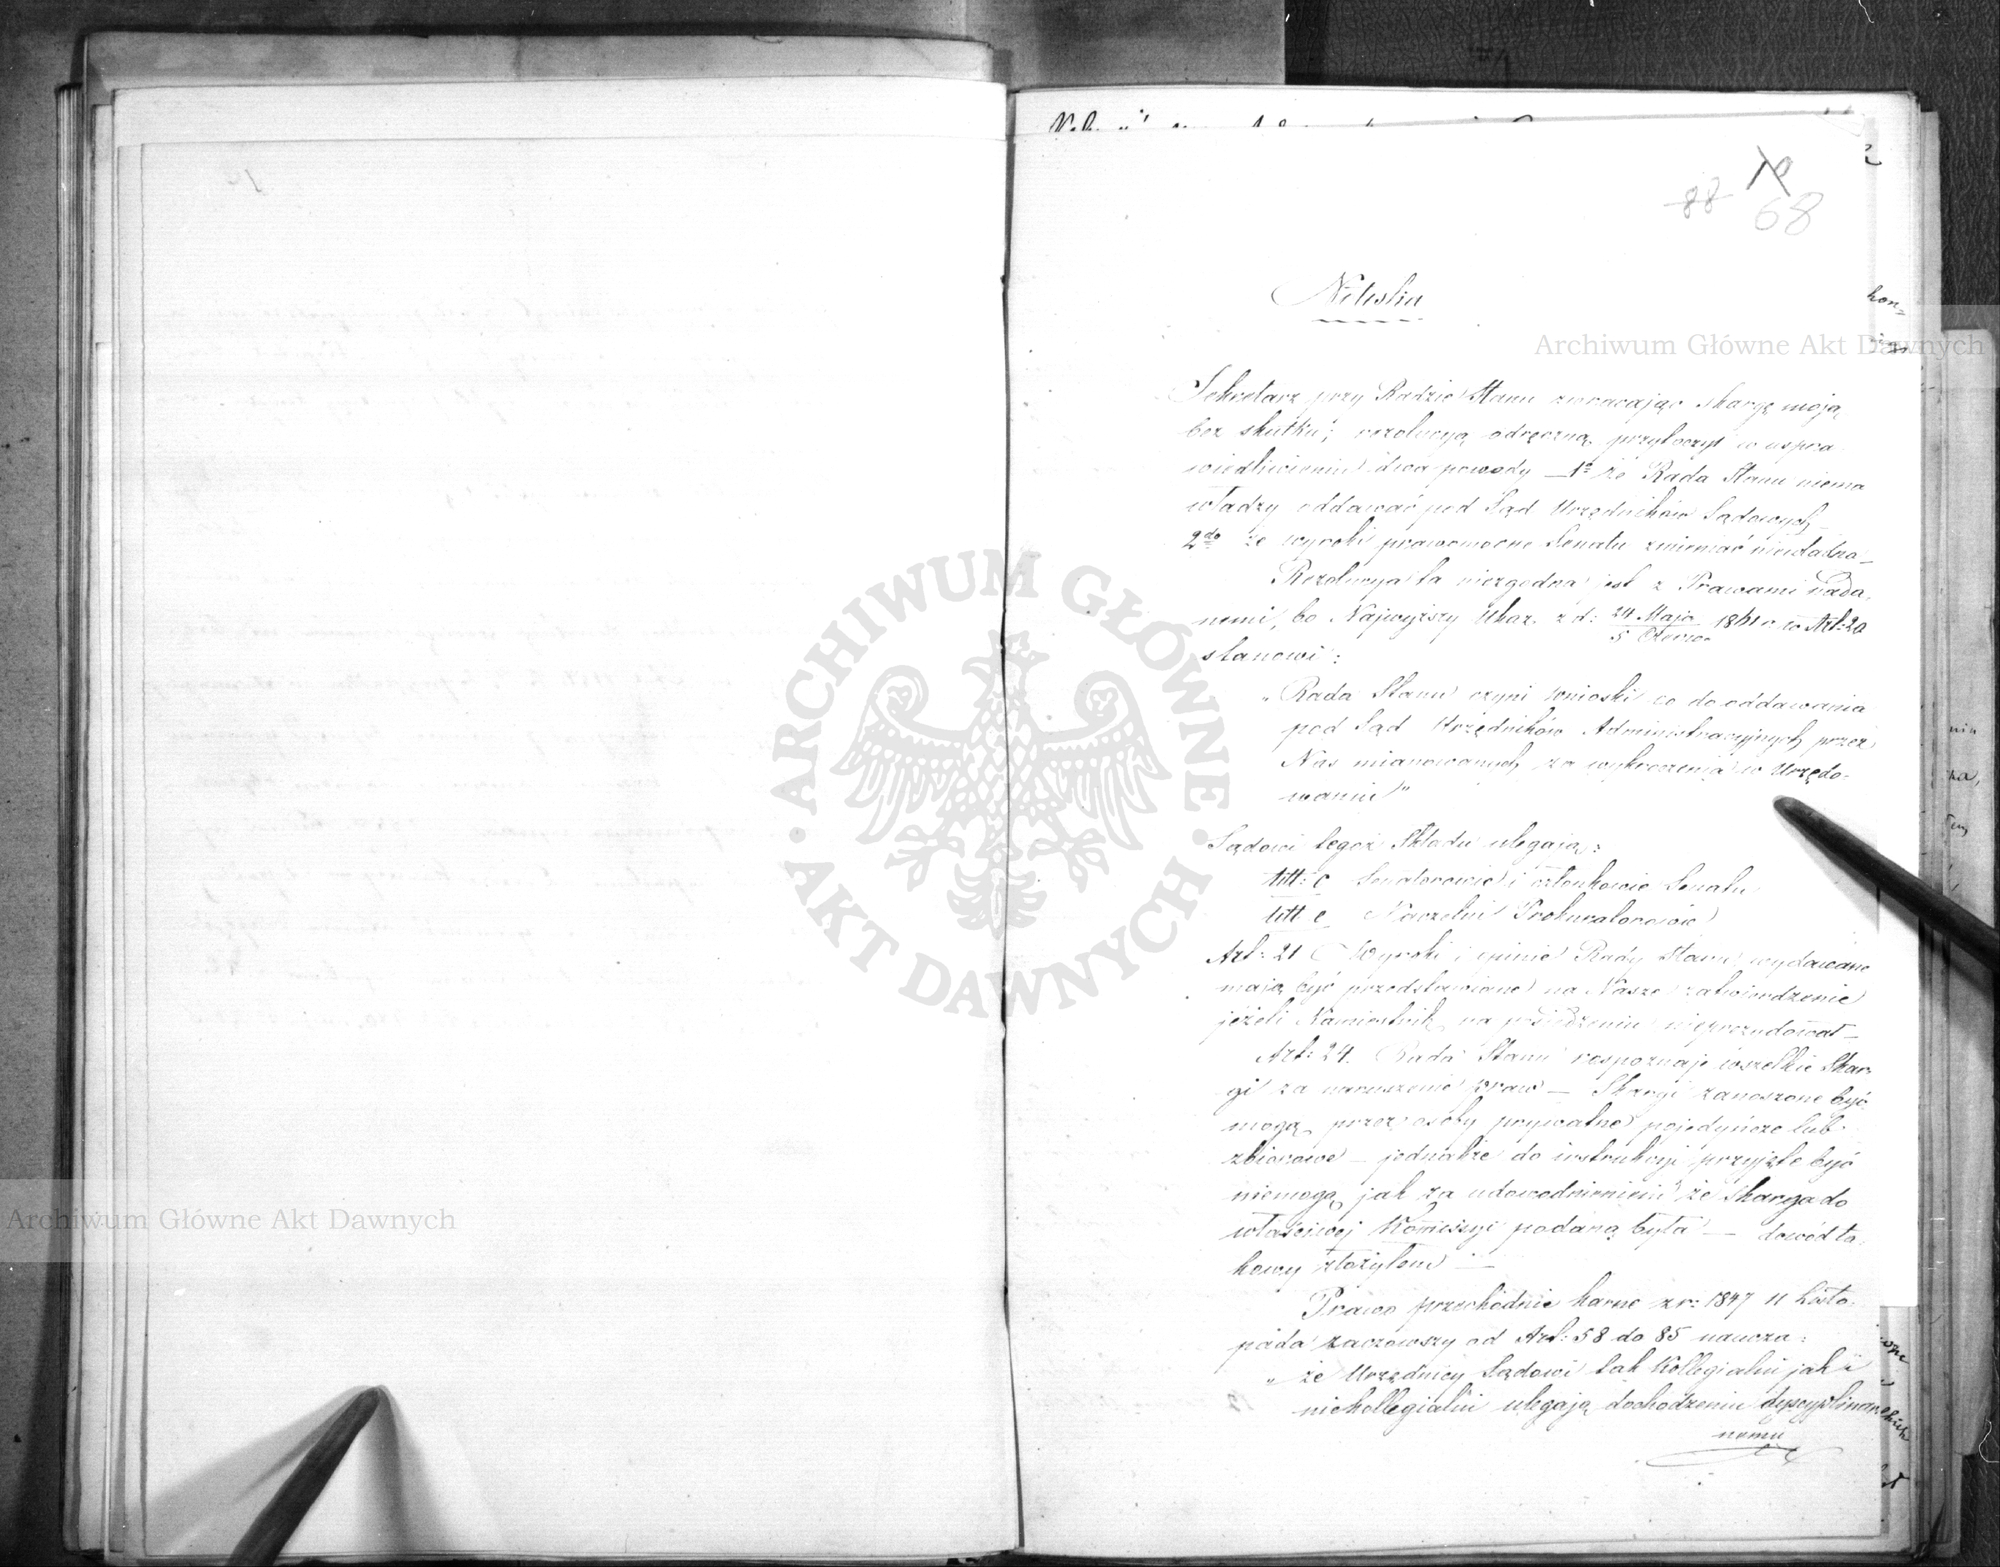 10
88 68
Notatka
Archiwum Główne Akt Dawnych
Sekretarz przy Radzie Stanu zwracając skargę moją
bez skutku; rezolucyą odręczną przytoczył w uspra
wiedliwieniu dwa powody — 1º że Rada Stanu niema
władzy oddawać pod Sąd Urzędników Sądowych —
2do że wyroki prawomocne Senatu zmieniać niewładna —
Rezolucya ta niezgodna jest z Prawami nada
nemi, bo Najwyższy Ukaz z d: 24 Maja / 5 Czerwca 1861 r. w Art: 20
stanowi:
„Rada Stanu czyni wnioski co do oddawania
pod Sąd Urzędników Administracyjnych przez
Nas mianowanych za wykroczenia w Urzędo-
waniu"
Sądowi tegoż Składu ulegają:
litt: c Senatorowie i członkowie Senatu
litt e Naczelni Prokuratorowie
Art: 21 Wyroki i opinie Rady Stanu wydawane
mają być przedstawiane na Nasze zatwierdzenie
jeżeli Namiestnik na posiedzeniu nieprzydował —
Art: 24. Rada Stanu rozpoznaje wszelkie Skar
gi za naruszenie praw — Skargi zanoszone być
mogą przez osoby prywatne pojedyńcze lub
zbiorowe — jednakże do instrukcyi przyjęte być
niemogą jak za udowodnieniem że skarga do
właściwej Kommissyi podaną była — dowód ta
kowy złożyłem —
Prawo przechodnie karne z r: 1847 11 Listo
pada zacząwszy od Art: 58 do 85 naucza:
„że Urzędnicy Sądowi tak Kollegialni jak i
niekollegialni ulegają dochodzeniu dyscyplinar
nemu
ARCHIWUM GŁÓWNE AKT DAWNYCH
Archiwum Główne Akt Dawnych